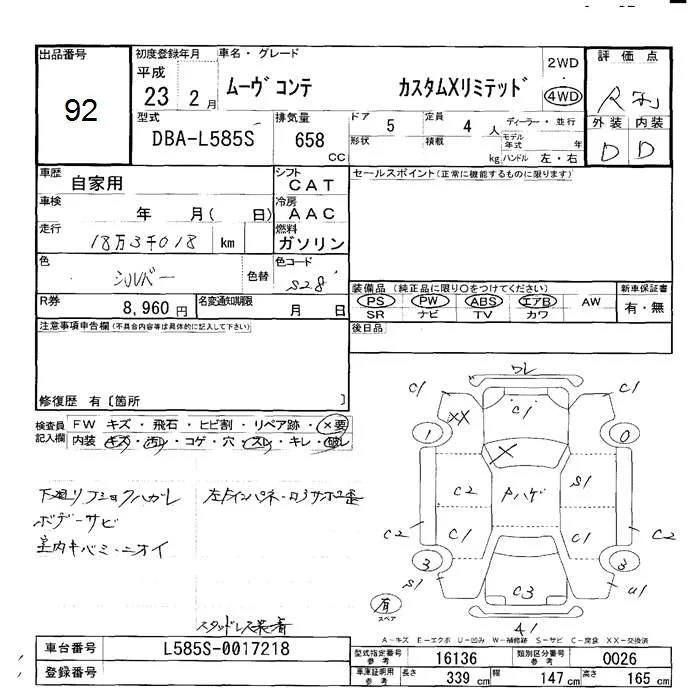 出品番号
92
初度登録年月
平成
23 2月
車名・グレード
ムーヴ コンテ カスタムXリミテッド
2WD
4WD
評価点
R
外装 内装
D D
型式
DBA-L585S
排気量
658 cc
ドア 5
形状
定員 4 人
積載 kg
ディーラー・並行
モデル年式 年
ハンドル 左・右
車歴 自家用
シフト CAT
車検 年 月( 日)
冷房 AAC
走行 18万3千018 km
燃料 ガソリン
色 シルバー 色替
色コード S28
R券 8,960円
名変通知期限 月 日
セールスポイント(正常に機能するものに限ります)
装備品(純正品に限り○をつけてください)
PS PW ABS エアB AW
SR ナビ TV カワ
新車保証書
有・無
後日品
注意事項申告欄(不具合内容等は具体的に記入して下さい)
修復歴 有〔箇所 〕
検査員記入欄
FW キズ・飛石・ヒビ割・リペア跡・×要
内装 キズ・汚レ・コゲ・穴・スレ・キレ・破レ
下廻リ フミ ハガレ
ボデーサビ
室内キバミ・ニオイ
左右インパネ
スタッドレス装着
ワレ
C1 C1 C1
XX
1 0
X
C2 Pハゲ S1
C2 C1 C1 C2
3 3
S1 C3 U1
有
スペア
A1
A-キズ E-エクボ U-凹み W-補修跡 S-サビ C-腐食 XX-交換済
車台番号 L585S-0017218
登録番号
型式指定番号 参考 16136
類別区分番号 参考 0026
車庫証明用 参考 長さ 339 cm 幅 147 cm 高さ 165 cm